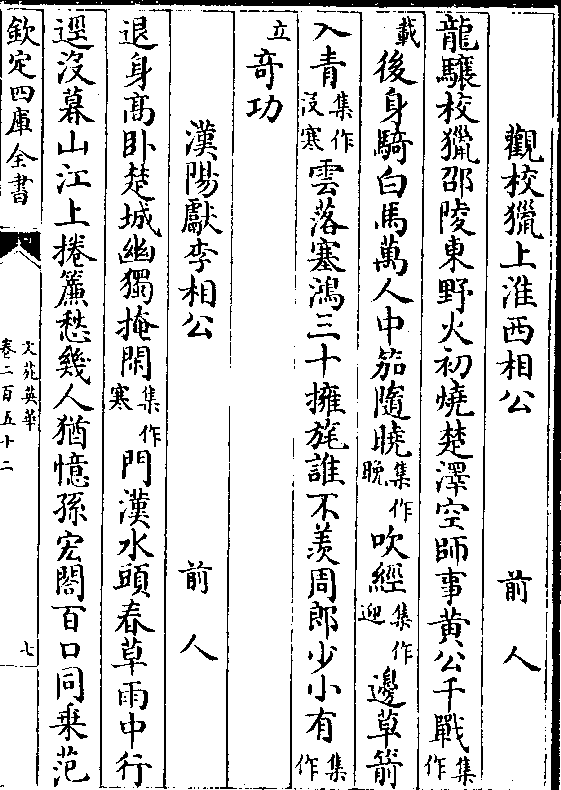 觀校獵上淮西相公　　前人
龍驤校獵邵陵東野火初燒楚澤空師事黄公千戰集作
載後身騎白馬萬人中笳隨曉集作晚吹經集作迎邊草箭
入青集作沒寒雲落塞鴻三十擁旄誰不羨周郎少小有集作
立奇功
漢陽獻李相公　　前人
退身髙卧楚城幽獨掩閑集作寒門漢水頭春草雨中行
逕沒暮山江上捲簾愁幾人猶憶孫宏閤百口同乗范
欽定四庫全書
文苑英華
卷二百五十二
七